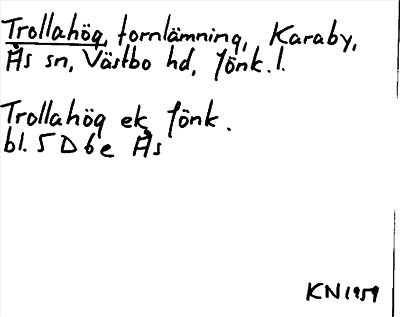 Trollahög, fornlämning, Karaby,
Ås sn, Västbo hd, Jönk. l.
Trollahög ek. Jönk.
bl. 5 D 6 e Ås
KN 1959